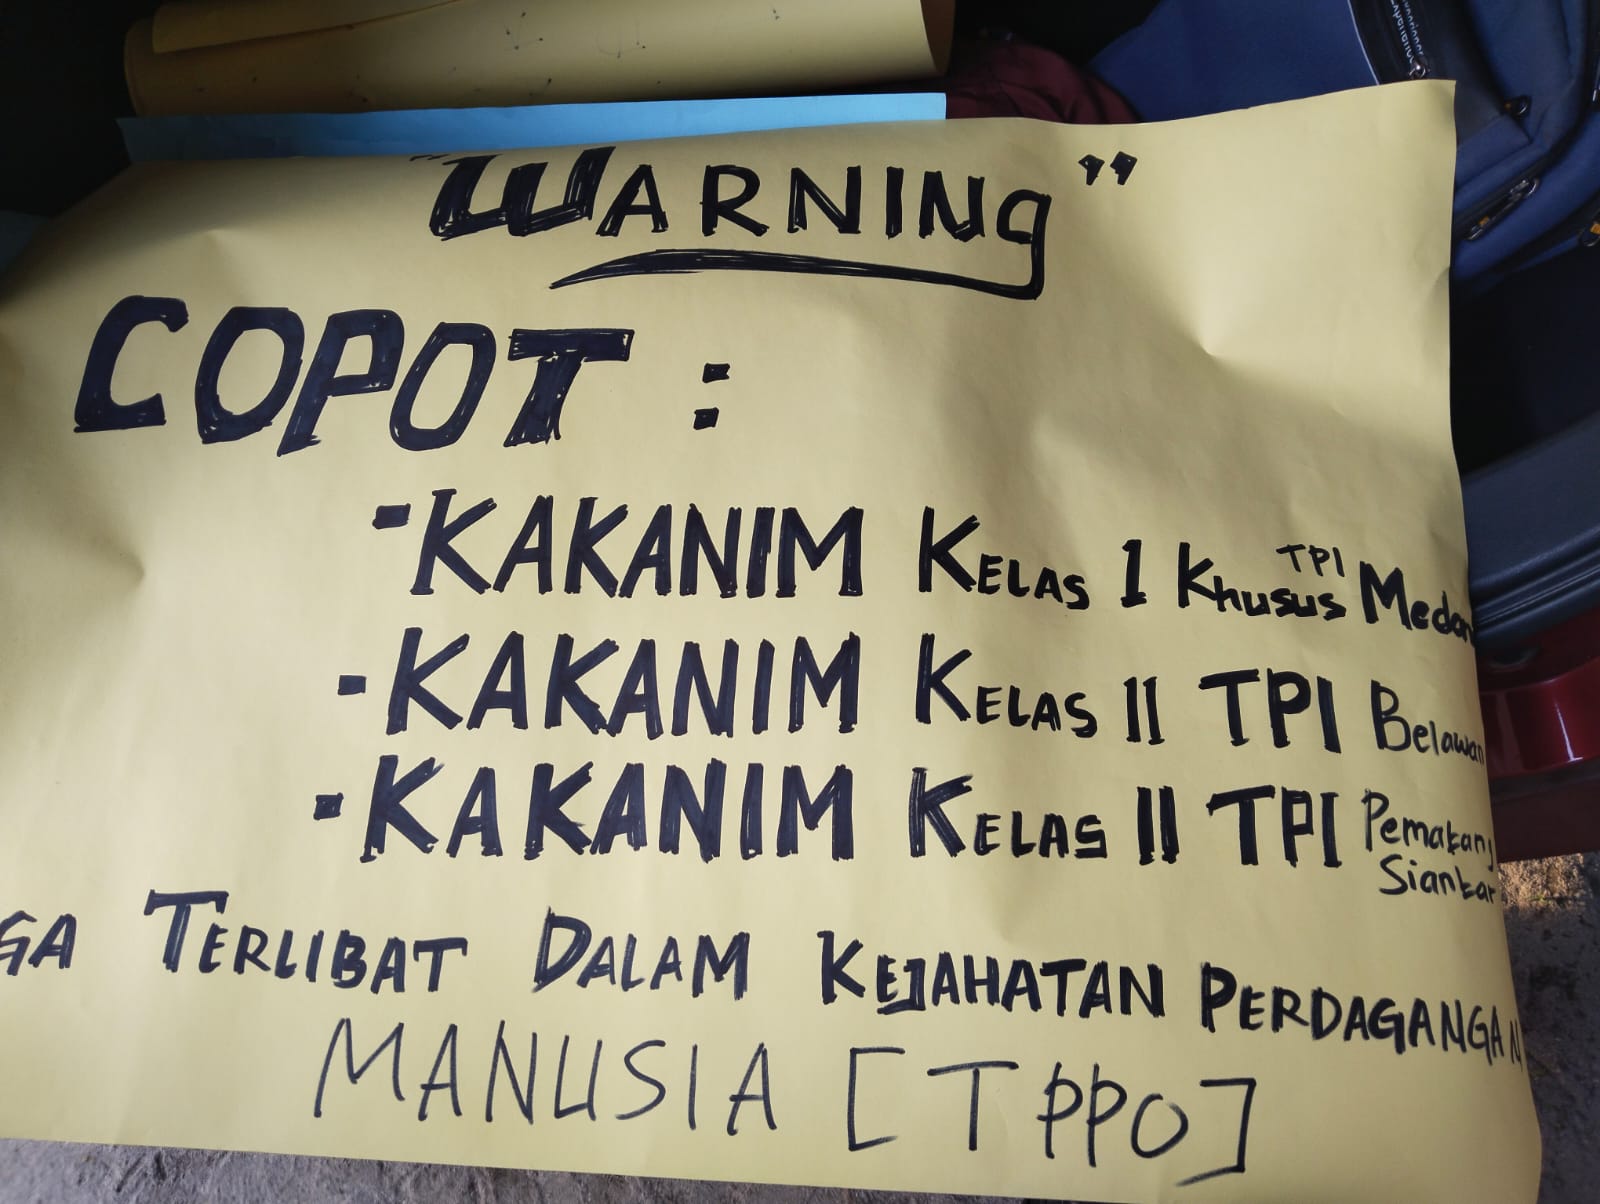 "WARNING"
COPOT :
- KAKANIM KELAS I Khusus TPI Medan
- KAKANIM KELAS II TPI Belawan
- KAKANIM KELAS II TPI Pematang
Siantar
GA TERLIBAT DALAM KEJAHATAN PERDAGANGAN
MANUSIA [TPPO]